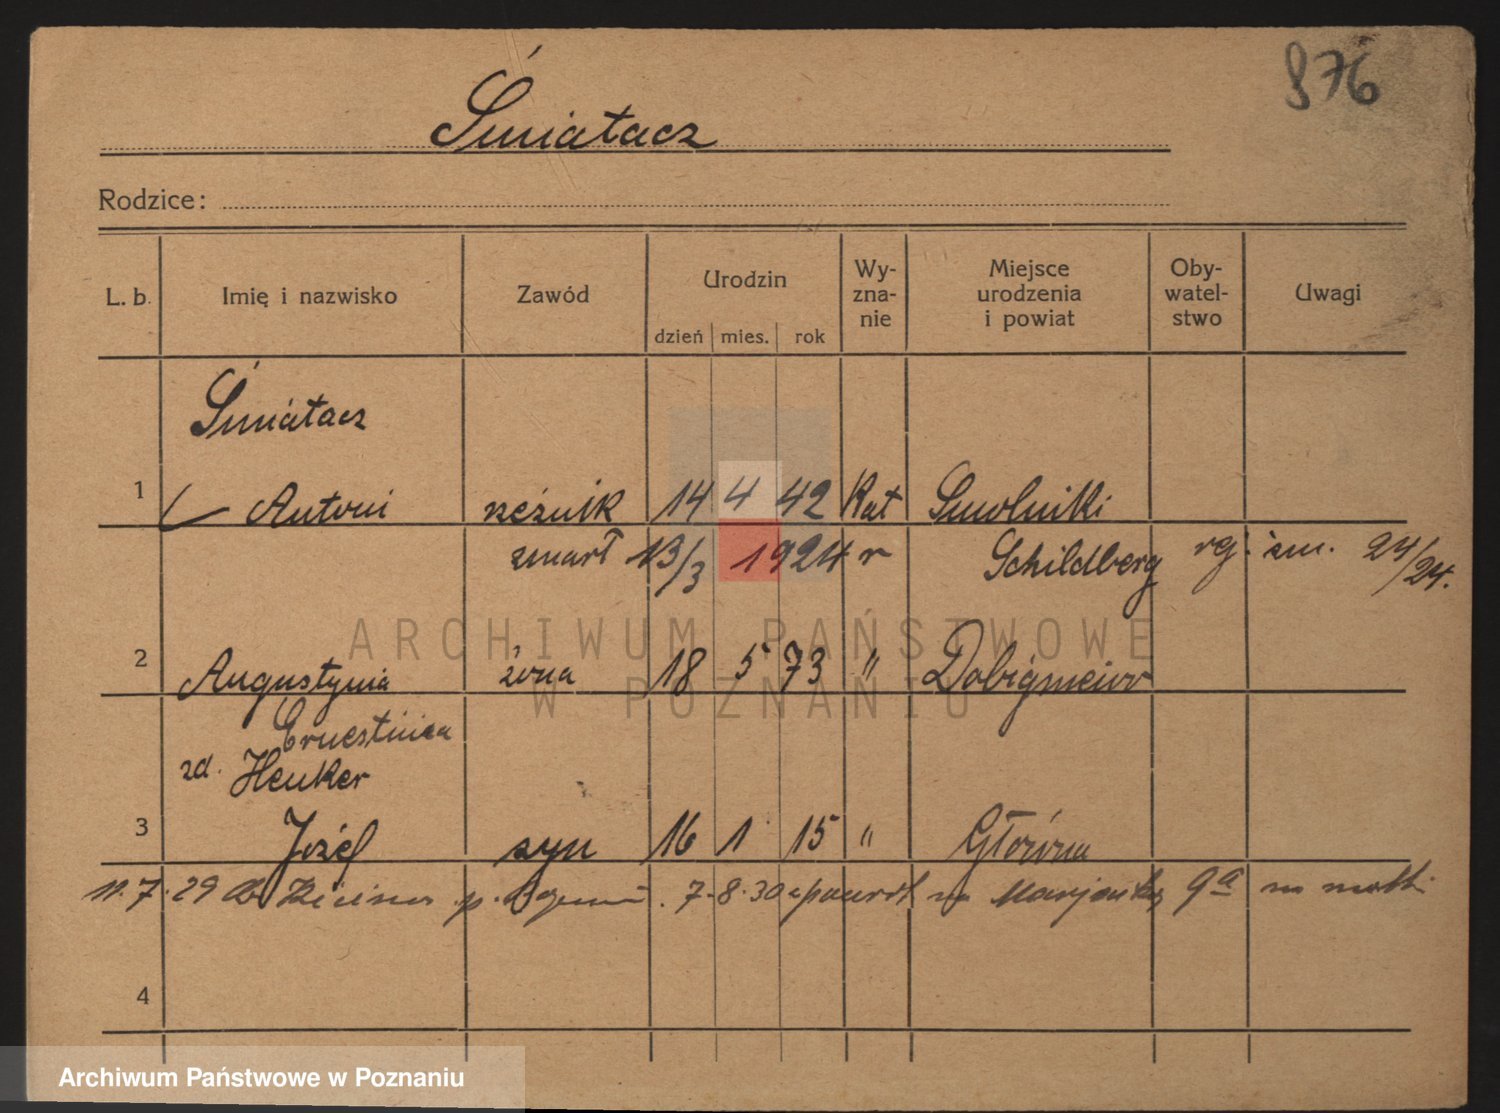 876
Śmiatacz
Rodzice:
L. b. Imię i nazwisko Zawód Urodzin dzień mies. rok Wy-zna-nie Miejsce urodzenia i powiat Oby-watel-stwo Uwagi
Śmiatacz
1 Antoni rzeźnik 14 4 42 Kat Smolniki
zmarł 13/3 1924 r Schildberg zm. 24/24.
ARCHIWUM PAŃSTWOWE
2 Augustynia żona 18 5 73 " 
W POZNANIU
Ernestina
zd. Henker
3 Józef syn 16 1 15 " Główna
11.7.29 do p. 7.8.30 na 9a
4
Archiwum Państwowe w Poznaniu